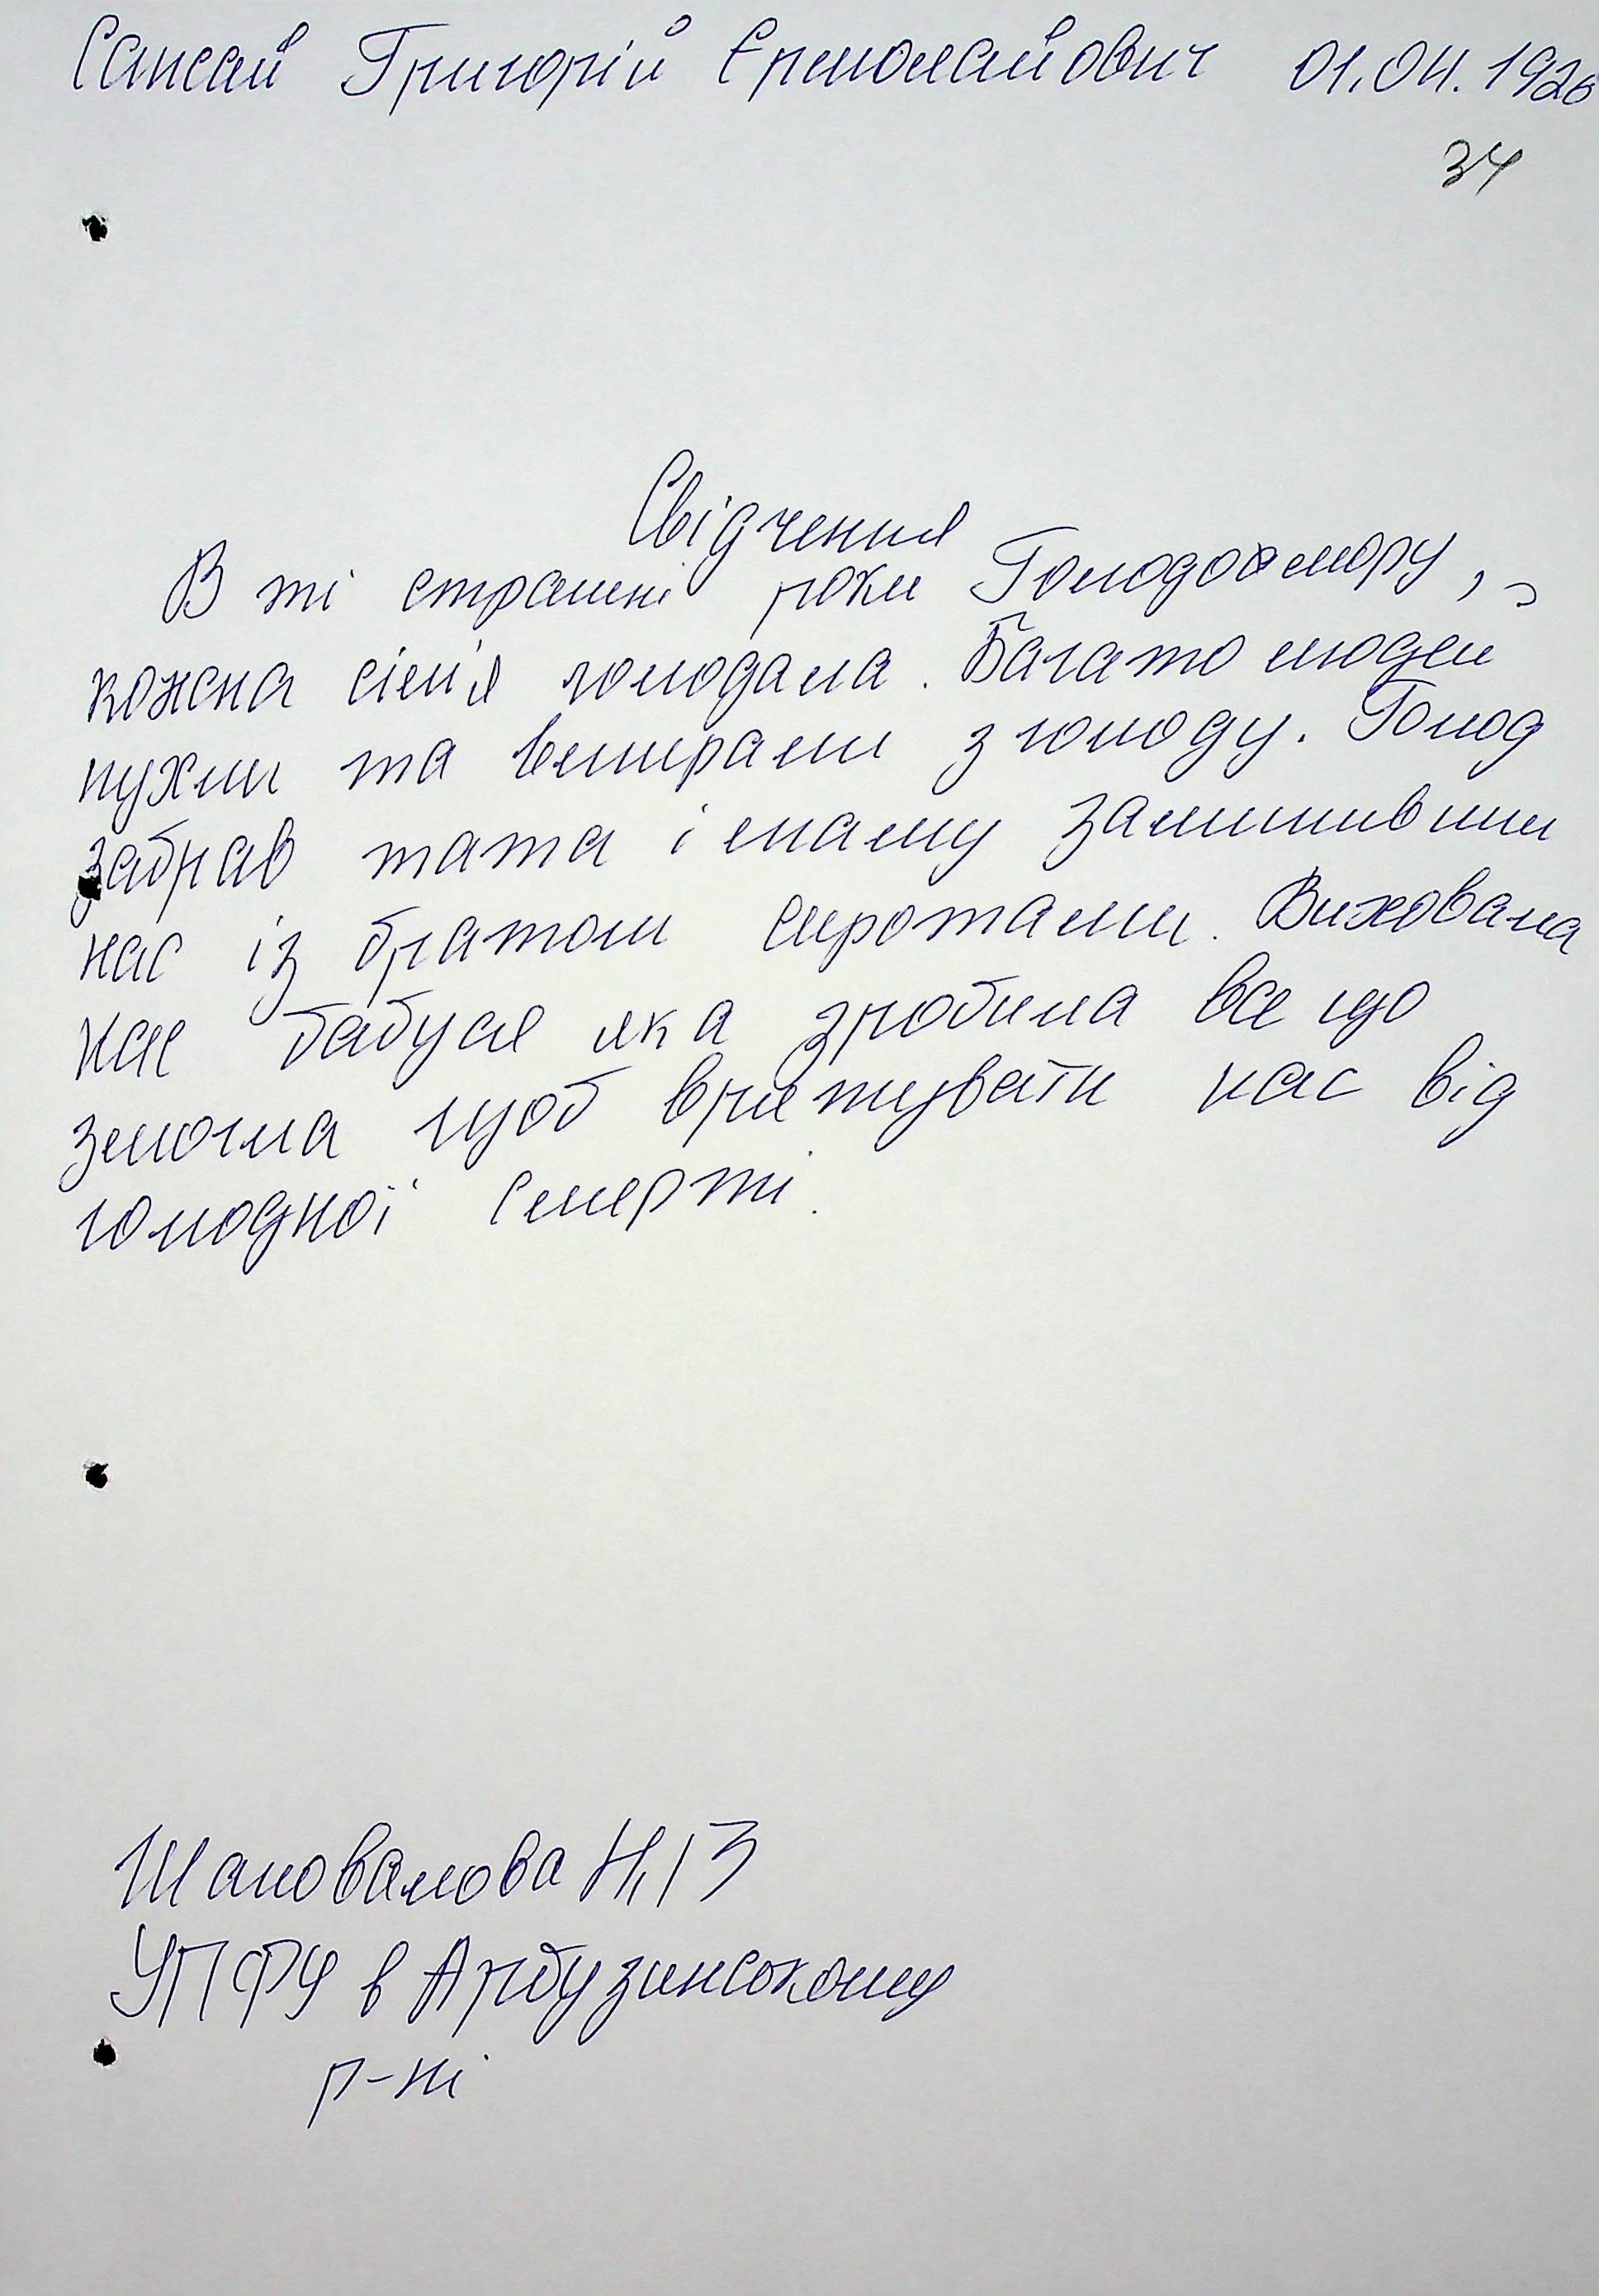 Сансай Григорій Єрмолайович 01.04.1926
34
Свідчення
В ті страшні роки Голодомору,
кожна сім'я голодала. Багато людей
пухли та вмирали з голоду. Голод
забрав тата і маму залишивши
нас із братом сиротами. Виховала
нас бабуся яка зробила все що
змогла щоб врятувати нас від
голодної смерті.
Шаповалова Н,
УПФУ в Арбузинському
р-ні